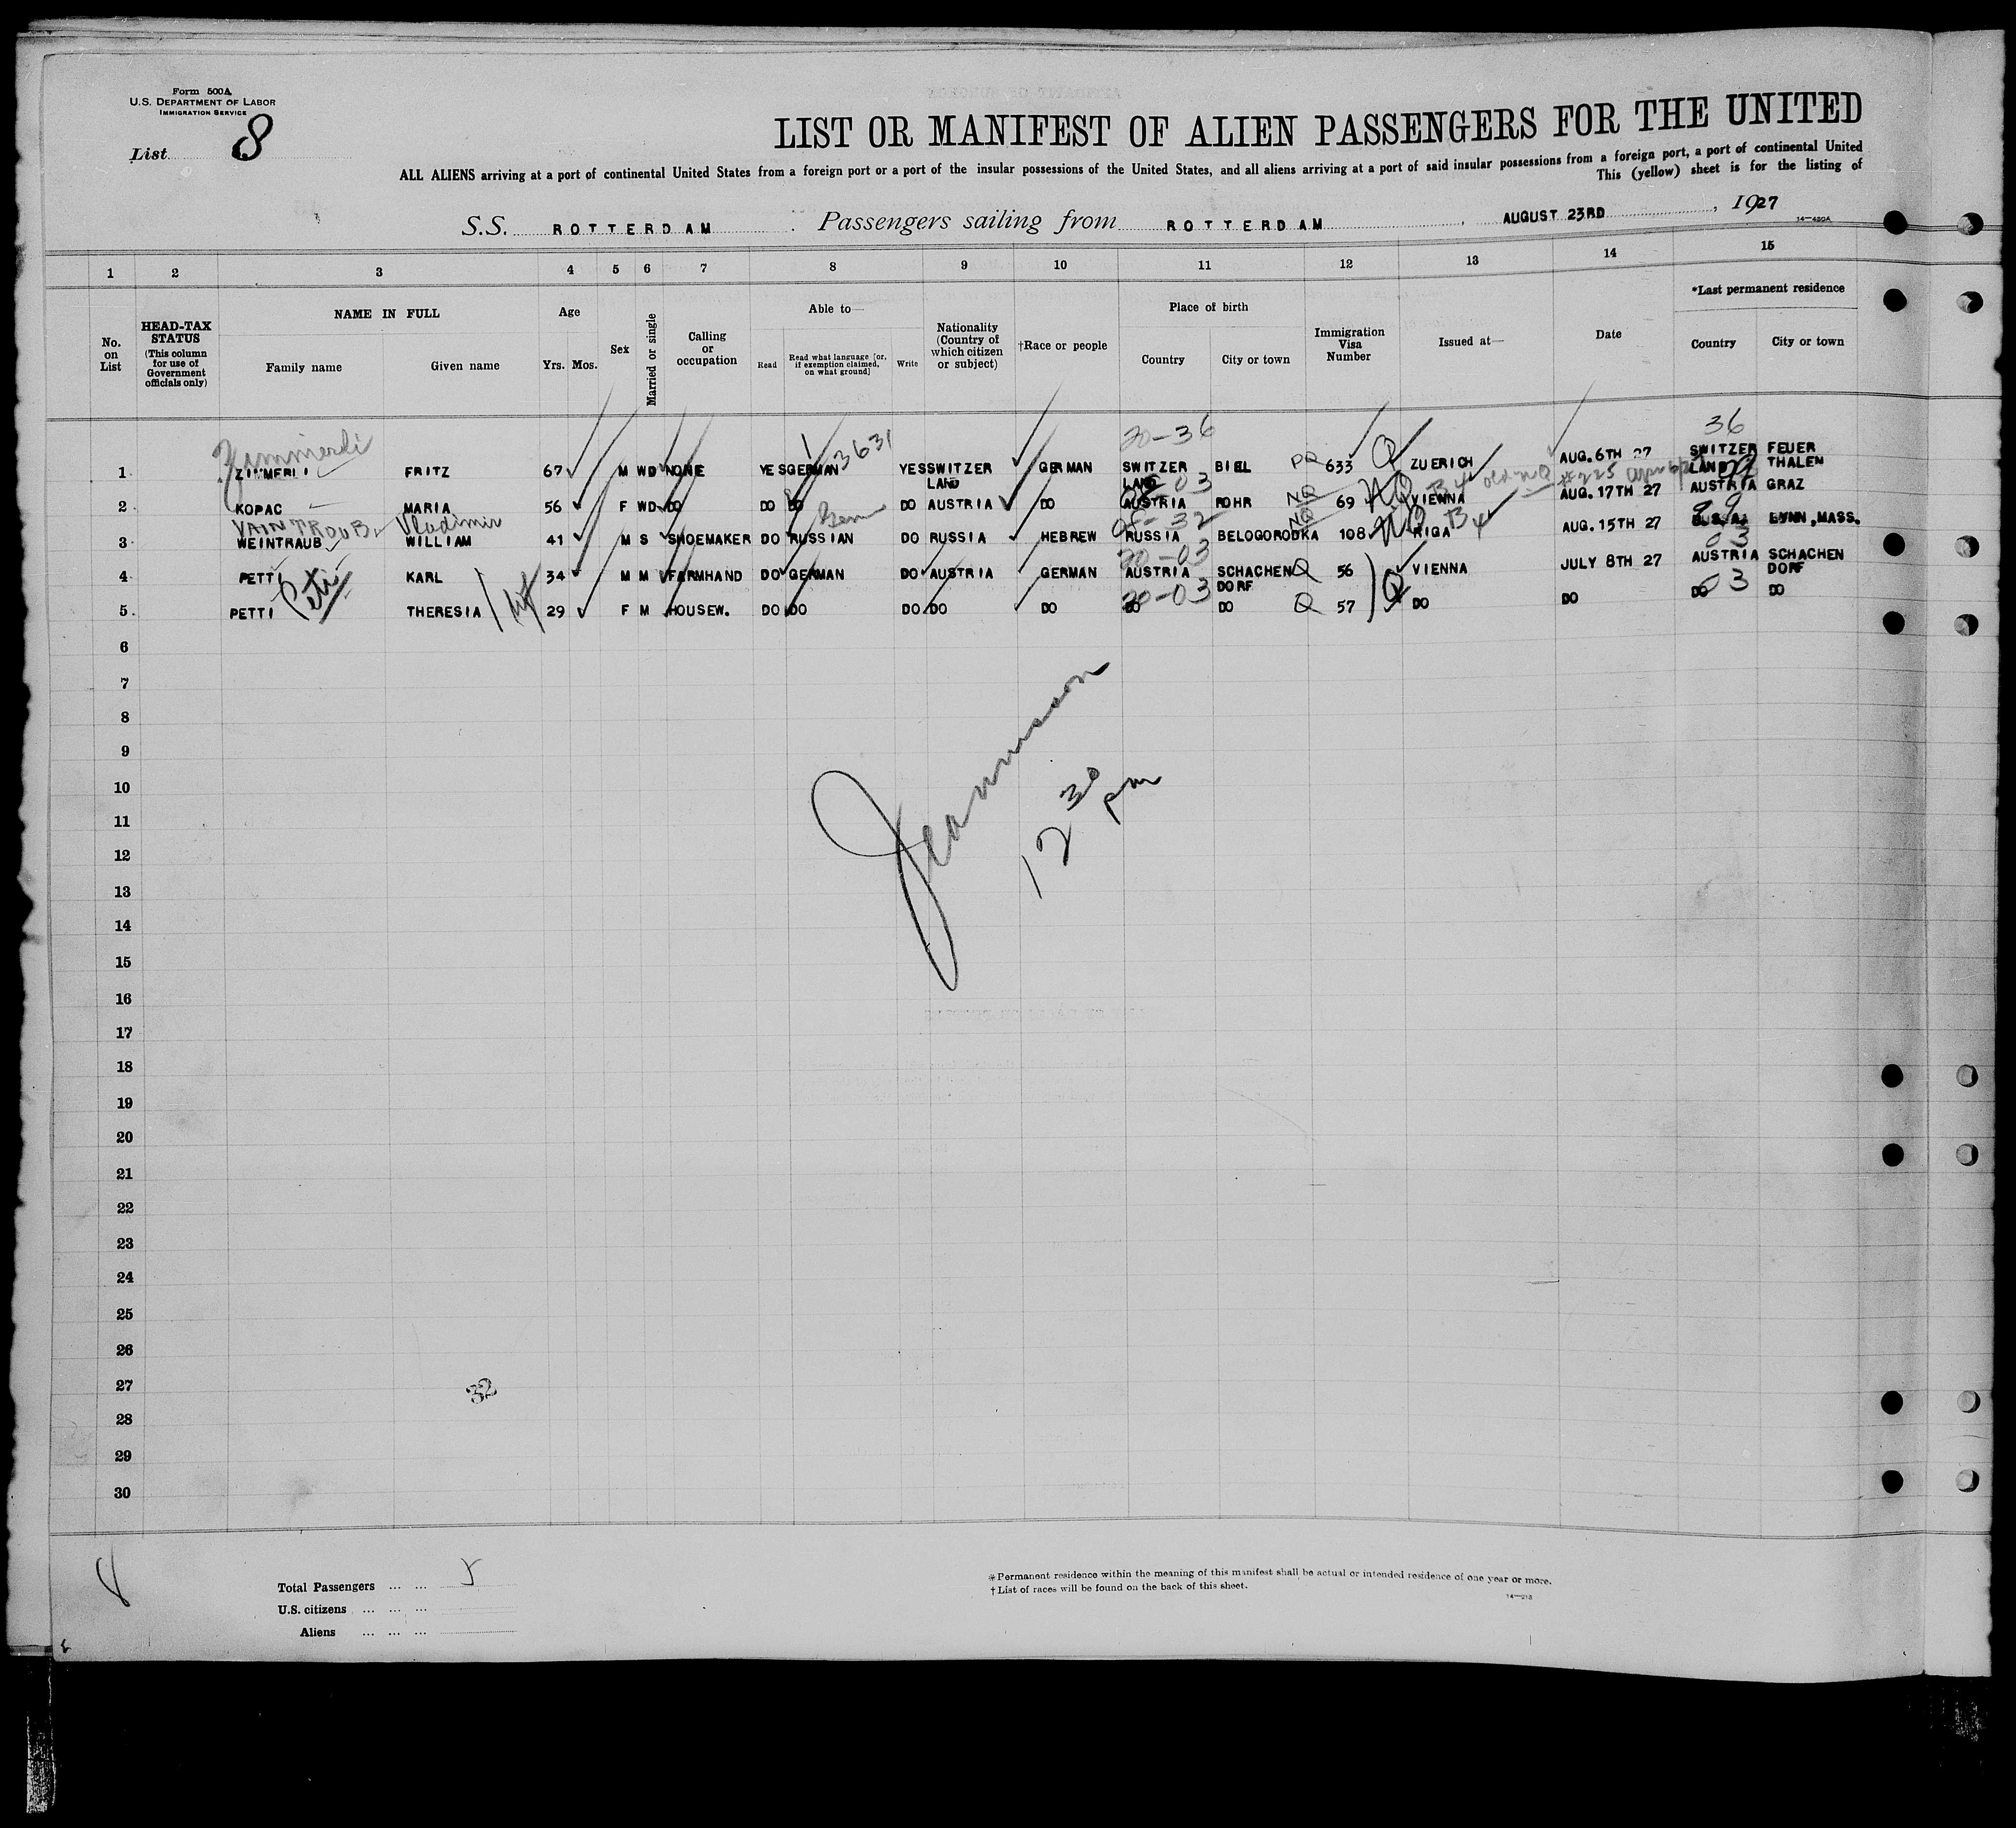 Form 500A
U.S. DEPARTMENT OF LABOR
IMMIGRATION SERVICE
List 8
LIST OR MANIFEST OF ALIEN PASSENGERS FOR THE UNITED
ALL ALIENS arriving at a port of continental United States from a foreign port or a port of the insular possessions of the United States, and all aliens arriving at a port of said insular possessions from a foreign port, a port of continental United
This (yellow) sheet is for the listing of
S.S. ROTTERDAM Passengers sailing from ROTTERDAM, AUGUST 23RD, 1927
1 2 3 4 5 6 7 8 9 10 11 12 13 14 15
No. on List
HEAD-TAX STATUS (This column for use of Government officials only)
NAME IN FULL
Family name Given name
Age
Yrs. Mos.
Sex
Married or single
Calling or occupation
Able to—
Read
Read what language [or, if exemption claimed, on what ground]
Write
Nationality (Country of which citizen or subject)
†Race or people
Place of birth
Country City or town
Immigration Visa Number
Issued at—
Date
*Last permanent residence
Country City or town
20-36 36
Zimmerli 3631
1 ZIMMERLI FRITZ 67 M WD NONE YES GERMAN YES SWITZERLAND GERMAN SWITZERLAND BIEL PQ 633 Q ZUERICH AUG.6TH 27 SWITZERLAND FEUERTHALEN
03 B4 old NQ #225
2 KOPAC MARIA 56 F WD DO DO DO DO AUSTRIA DO AUSTRIA ROHR NQ 69 NQ VIENNA AUG.17TH 27 AUSTRIA GRAZ
VAINTROUB Vladimir Germ 08-32 NQ B4 99
3 WEINTRAUB WILLIAM 41 M S SHOEMAKER DO RUSSIAN DO RUSSIA HEBREW RUSSIA BELOGORODKA 108 NQ RIGA AUG.15TH 27 RUSSIA LYNN, MASS.
20-03 03
4 PETTI Peti KARL 34 M M FARMHAND DO GERMAN DO AUSTRIA GERMAN AUSTRIA SCHACHENDORF Q 56 VIENNA JULY 8TH 27 AUSTRIA SCHACHENDORF
20-03 Q 03
5 PETTI THERESIA 29 F M HOUSEW. DO DO DO DO DO DO DO Q 57 DO DO DO DO
6
7
8
9
10
11
12
13
14
15
16
17
18
19
20
21
22
23
24
25
26
27
28
29
30
12 30 pm
32
Total Passengers ... ... 5
U.S. citizens ... ... ...
Aliens ... ... ...
*Permanent residence within the meaning of this manifest shall be actual or intended residence of one year or more.
†List of races will be found on the back of this sheet.